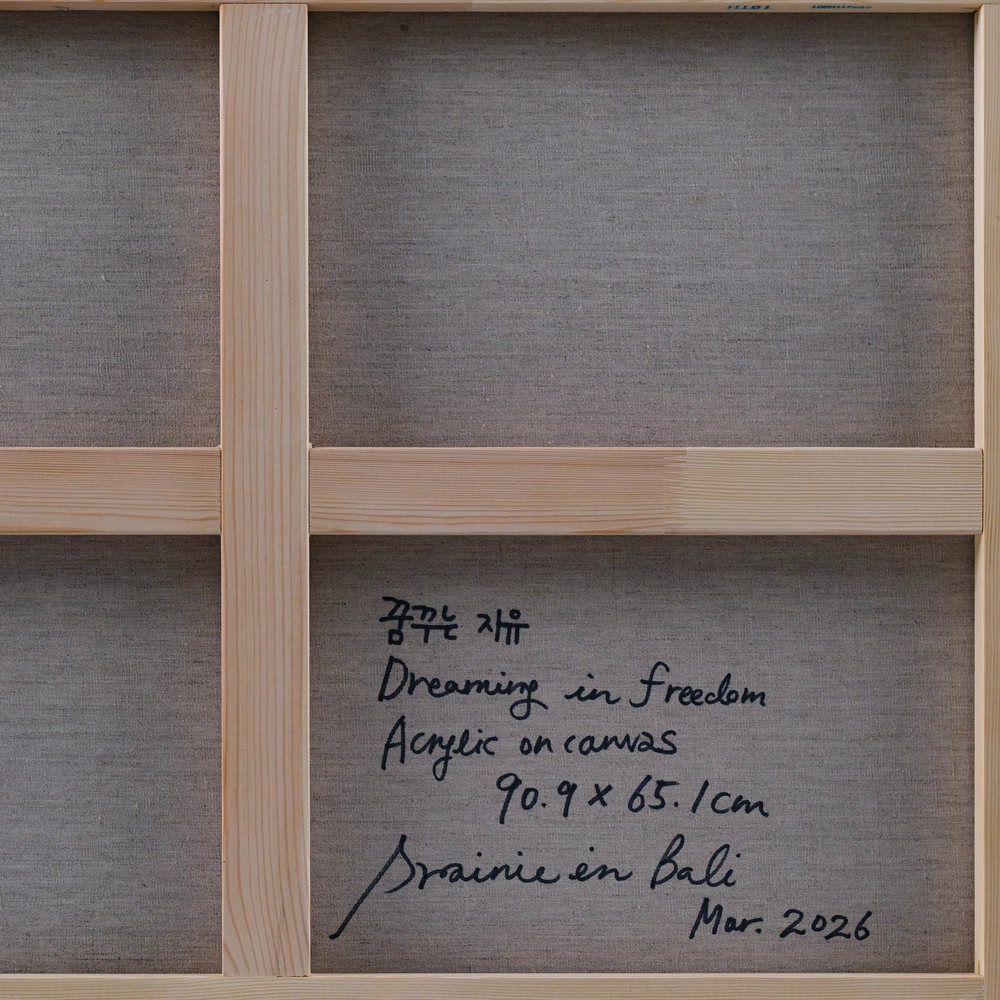 꿈꾸는 자유
Dreaming in freedom
Acrylic on canvas
90.9 x 65.1cm
in Bali
Mar. 2026